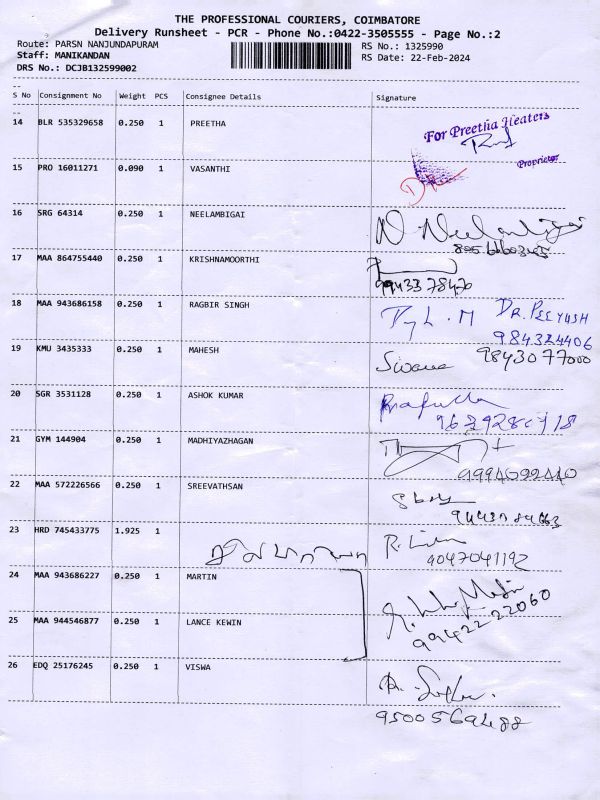 THE PROFESSIONAL COURIERS, COIMBATORE
Delivery Runsheet - PCR - Phone No.:0422-3505555 - Page No.:2
Route: PARSN NANJUNDAPURAM
RS No.: 1325990
Staff: MANIKANDAN
RS Date: 22-Feb-2024
DRS No.: DCJB132599002
S No Consignment No Weight PCS Consignee Details Signature
14 BLR 535329658 0.250 1 PREETHA
For Preetha Heaters
Proprietor
15 PRO 16011271 0.090 1 VASANTHI
16 SRG 64314 0.250 1 NEELAMBIGAI
17 MAA 864755440 0.250 1 KRISHNAMOORTHI
9943378470
18 MAA 943686158 0.250 1 RAGBIR SINGH
DR. PEEYUSH
984324406
19 KMU 3435333 0.250 1 MAHESH
9843077000
20 SGR 3531128 0.250 1 ASHOK KUMAR
21 GYM 144904 0.250 1 MADHIYAZHAGAN
22 MAA 572226566 0.250 1 SREEVATHSAN
23 HRD 745433775 1.925 1
9047041192
24 MAA 943686227 0.250 1 MARTIN
9942222060
25 MAA 944546877 0.250 1 LANCE KEWIN
26 EDQ 25176245 0.250 1 VISWA
9500569488